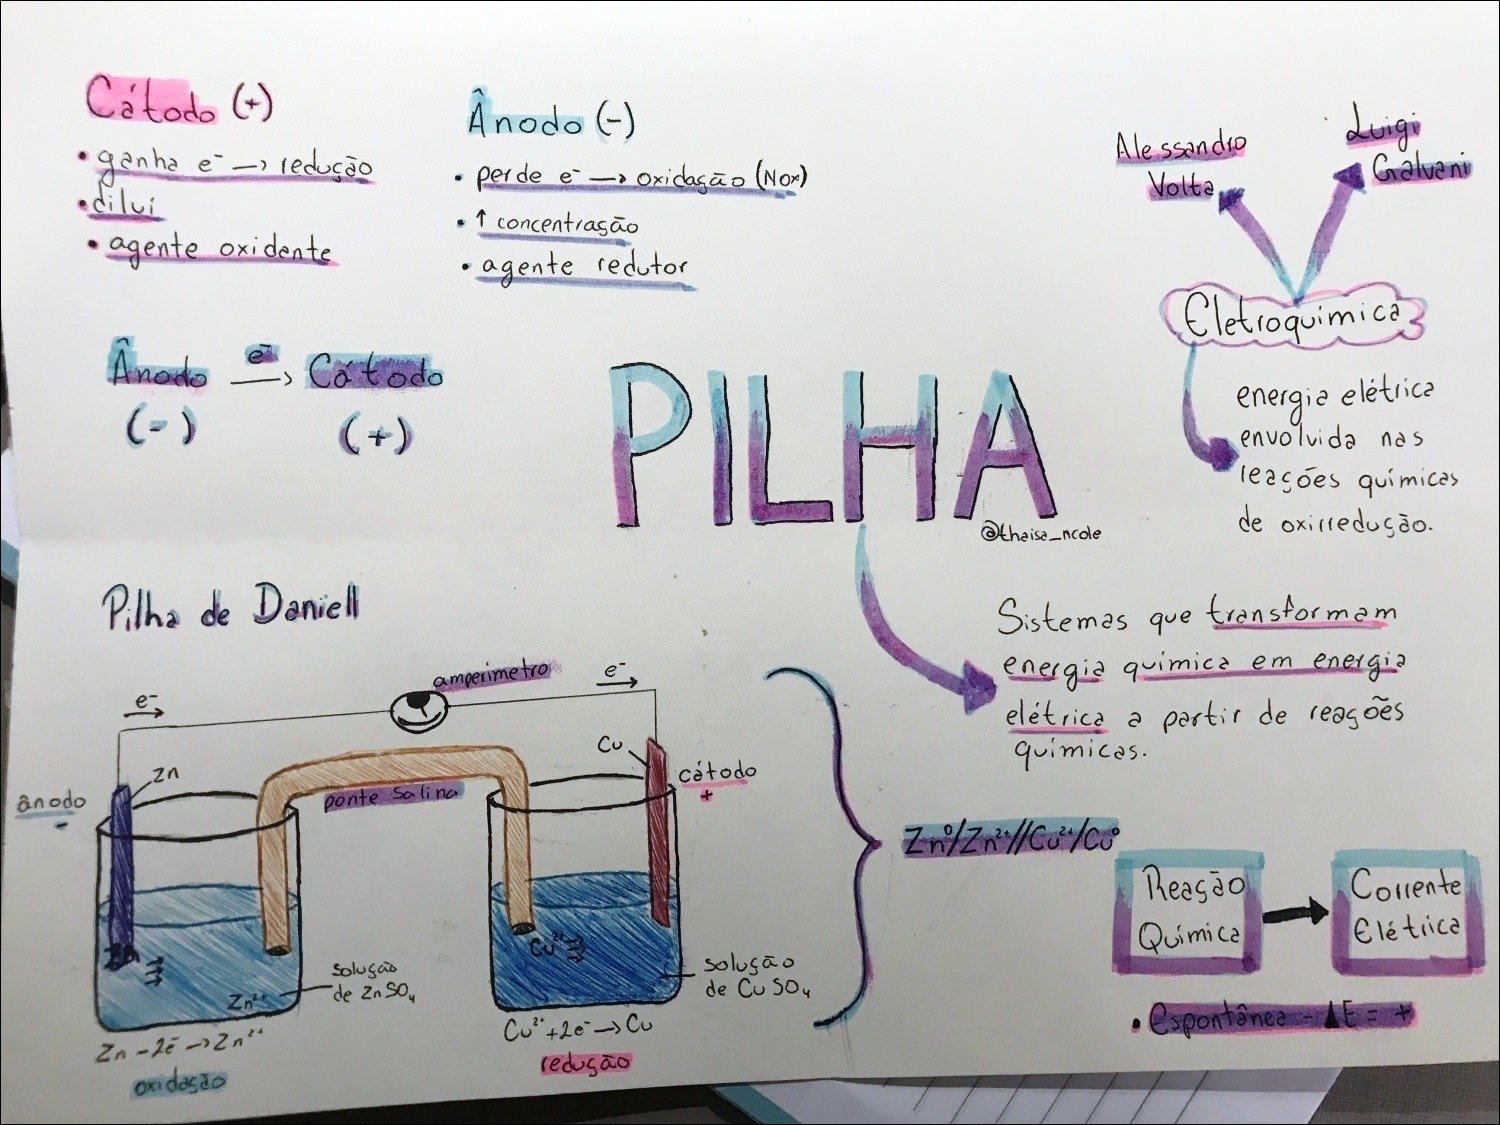 Cátodo (+)
• ganha e⁻ → redução
• diluí
• agente oxidante
Ânodo (-)
• perde e⁻ → oxidação (NOx)
• ↑ concentração
• agente redutor
Ânodo e⁻ → Cátodo
(-) (+)
Alessandro
Volta
Luigi
Galvani
Eletroquímica
energia elétrica
envolvida nas
reações químicas
de oxirredução.
PILHA
@thaisa_ncole
Sistemas que transformam
energia química em energia
elétrica a partir de reações
químicas.
Pilha de Daniell
amperímetro
e⁻ →
e⁻ →
Zn
Cu
ânodo
-
ponte salina
cátodo
+
Zn
Zn²⁺
Cu²⁺
solução
de ZnSO₄
solução
de CuSO₄
Zn - 2e⁻ → Zn²⁺
oxidação
Cu²⁺ + 2e⁻ → Cu
redução
Zn⁰/Zn²⁺//Cu²⁺/Cu⁰
Reação
Química
Corrente
Elétrica
• Espontânea - ΔE = +